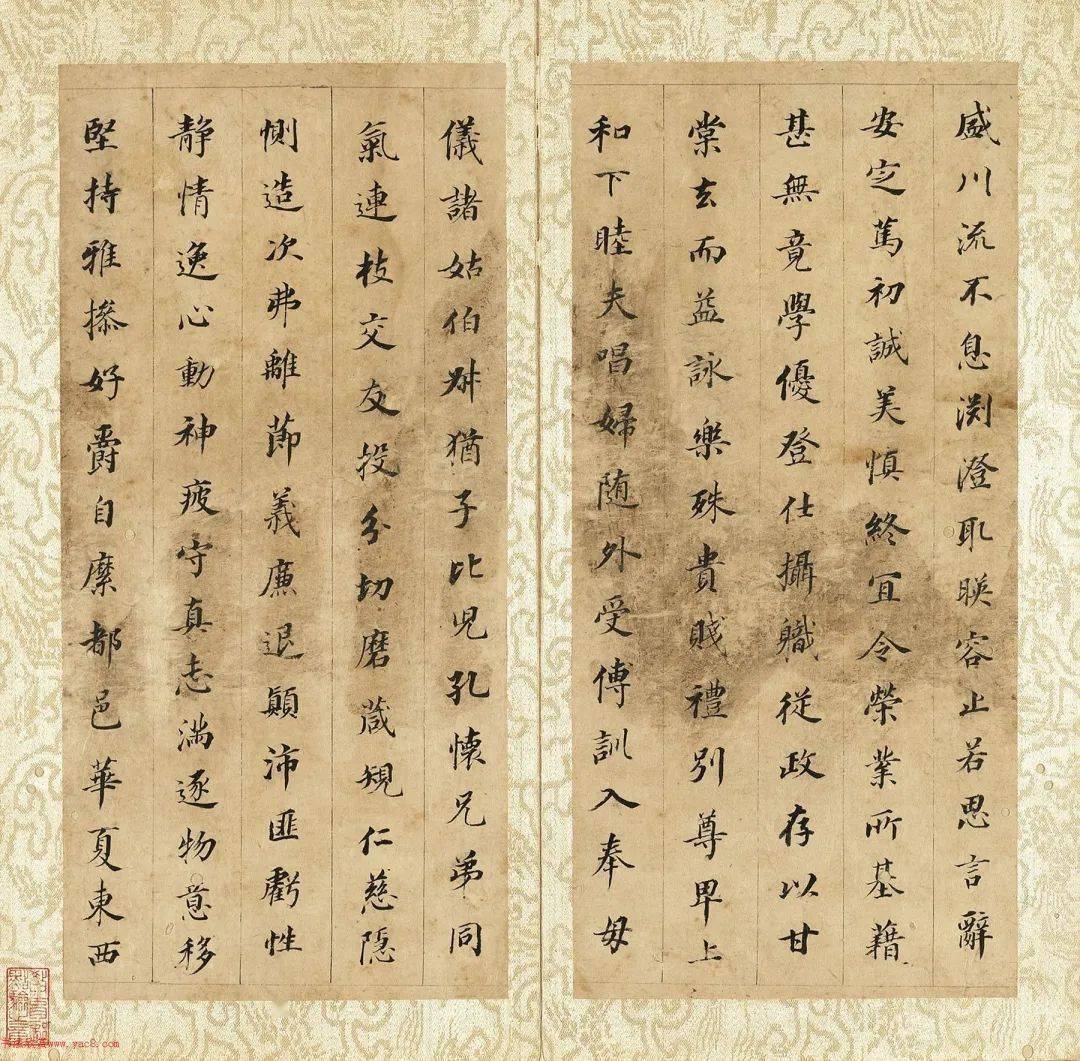 盛川流不息渊澄取暎容止若思言辭
安定篤初誠美慎終宜令榮業所基藉
甚無竟學優登仕攝職從政存以甘
棠去而益詠樂殊貴賤禮別尊卑上
和下睦夫唱婦随外受傅訓入奉母
儀諸姑伯叔猶子比児孔懐兄弟同
氣連枝交友投分切磨箴規仁慈隠
惻造次弗離節義廉退顛沛匪虧性
静情逸心動神疲守真志滿逐物意移
堅持雅操好爵自縻都邑華夏東西
www.yac8.com